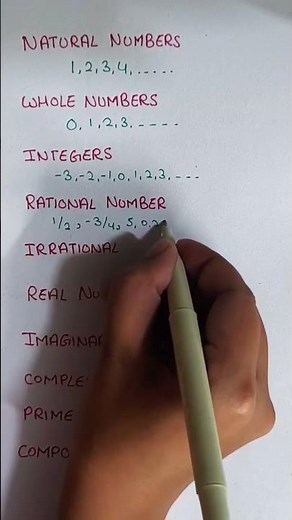 NATURAL NUMBERS
1,2,3,4,.....
WHOLE NUMBERS
0,1,2,3,----
INTEGERS
-3,-2,-1,0,1,2,3,---
RATIONAL NUMBER
1/2, -3/4, 5, 0.
IRRATIONAL
REAL
PRIME